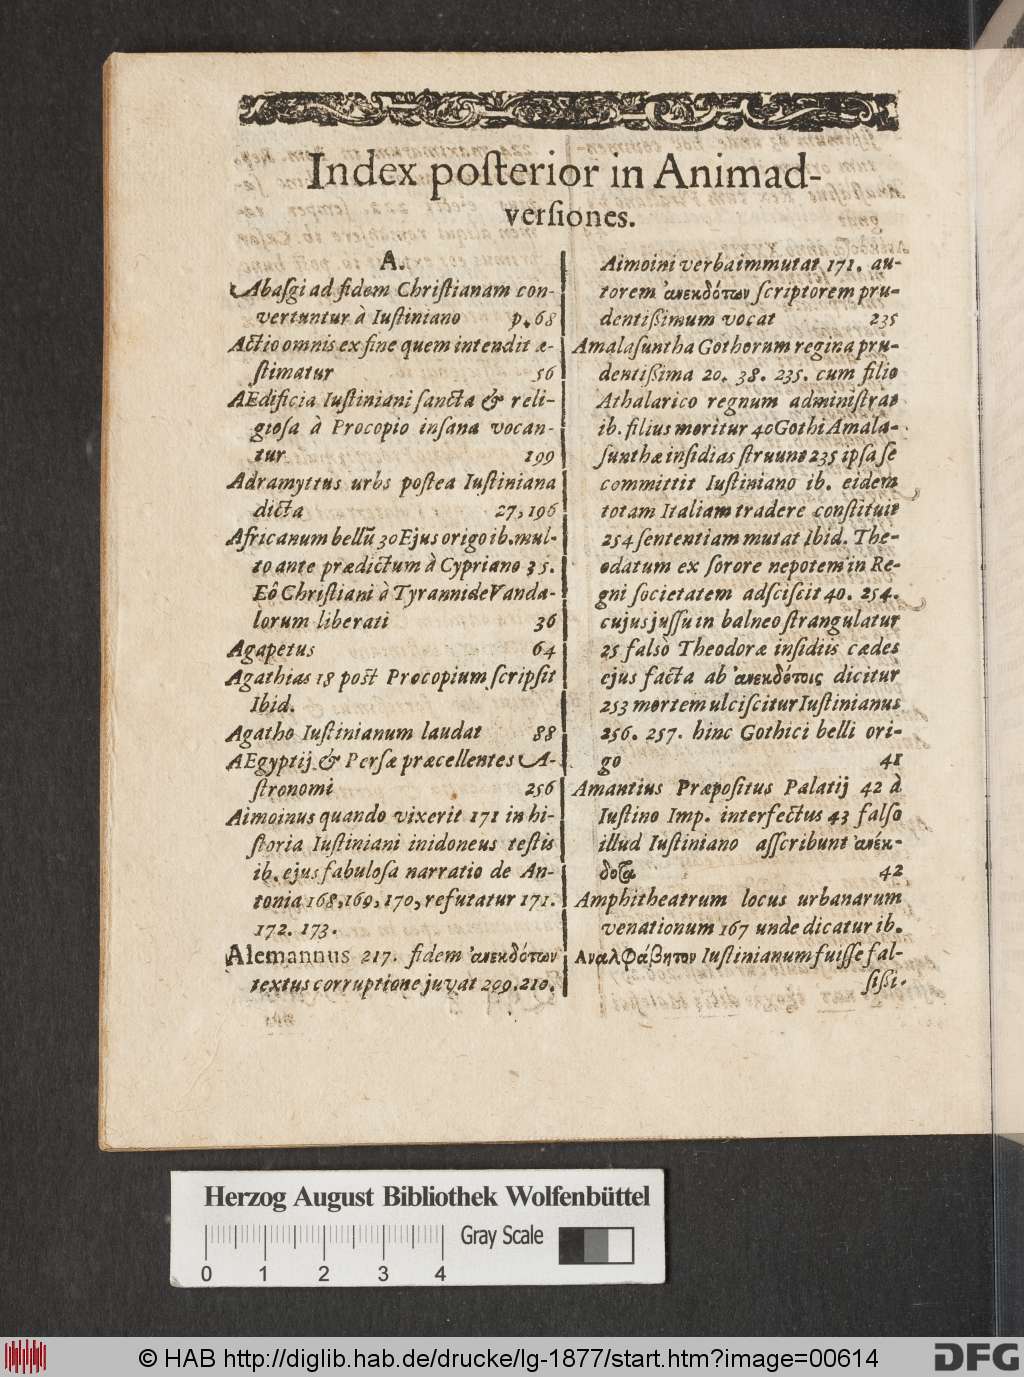 Index poſterior in Animad-
verſiones.
A.
Abaſgi ad fidem Chriſtianam con-
vertuntur à Iuſtiniano p. 68
Actio omnis ex fine quem intendit æ-
ſtimatur 56
AEdificia Iuſtiniani ſancta & reli-
gioſa à Procopio inſana vocan-
tur 199
Adramyttus urbs poſtea Iuſtiniana
dicta 27, 196
Africanum bellũ 30 Ejus origo ib. mul-
to ante prædictum à Cypriano 35.
Eô Chriſtiani à Tyrannide Vanda-
lorum liberati 36
Agapetus 64
Agathias 18 poſt Procopium ſcripſit
Ibid.
Agatho Iuſtinianum laudat 88
AEgyptij & Perſæ præcellentes A-
ſtronomi 256
Aimoinus quando vixerit 171 in hi-
ſtoria Iuſtiniani inidoneus teſtis
ib. ejus fabuloſa narratio de An-
tonia 168, 169, 170, refutatur 171.
172. 173.
Alemannus 217. fidem ἀνεκδότων
textus corruptione juvat 209. 210.
Aimoini verba immutat 171. au-
torem ἀνεκδότων ſcriptorem pru-
dentißimum vocat 235
Amalaſuntha Gothorum regina pru-
dentißima 20. 38. 235. cum filio
Athalarico regnum adminiſtrat
ib. filius moritur 40 Gothi Amala-
ſunthæ inſidias ſtruunt 235 ipſa ſe
committit Iuſtiniano ib. eidem
totam Italiam tradere conſtituit
254 ſententiam mutat Ibid. The-
odatum ex ſorore nepotem in Re-
gni ſocietatem adſciſcit 40. 254.
cujus juſſu in balneo ſtrangulatur
25 falsò Theodoræ inſidiis cædes
ejus facta ab ἀνεκδότοις dicitur
253 mortem ulciſcitur Iuſtinianus
256. 257. hinc Gothici belli ori-
go 41
Amantius Præpoſitus Palatij 42 à
Iuſtino Imp. interfectus 43 falſo
illud Iuſtiniano aſſcribunt ἀνέκ-
δοτα 42
Amphitheatrum locus urbanarum
venationum 167 unde dicatur ib.
Αναλφάβητον Iuſtinianum fuiſſe fal-
ſißi-
Herzog August Bibliothek Wolfenbüttel
Gray Scale
0 1 2 3 4
© HAB http://diglib.hab.de/drucke/lg-1877/start.htm?image=00614
DFG